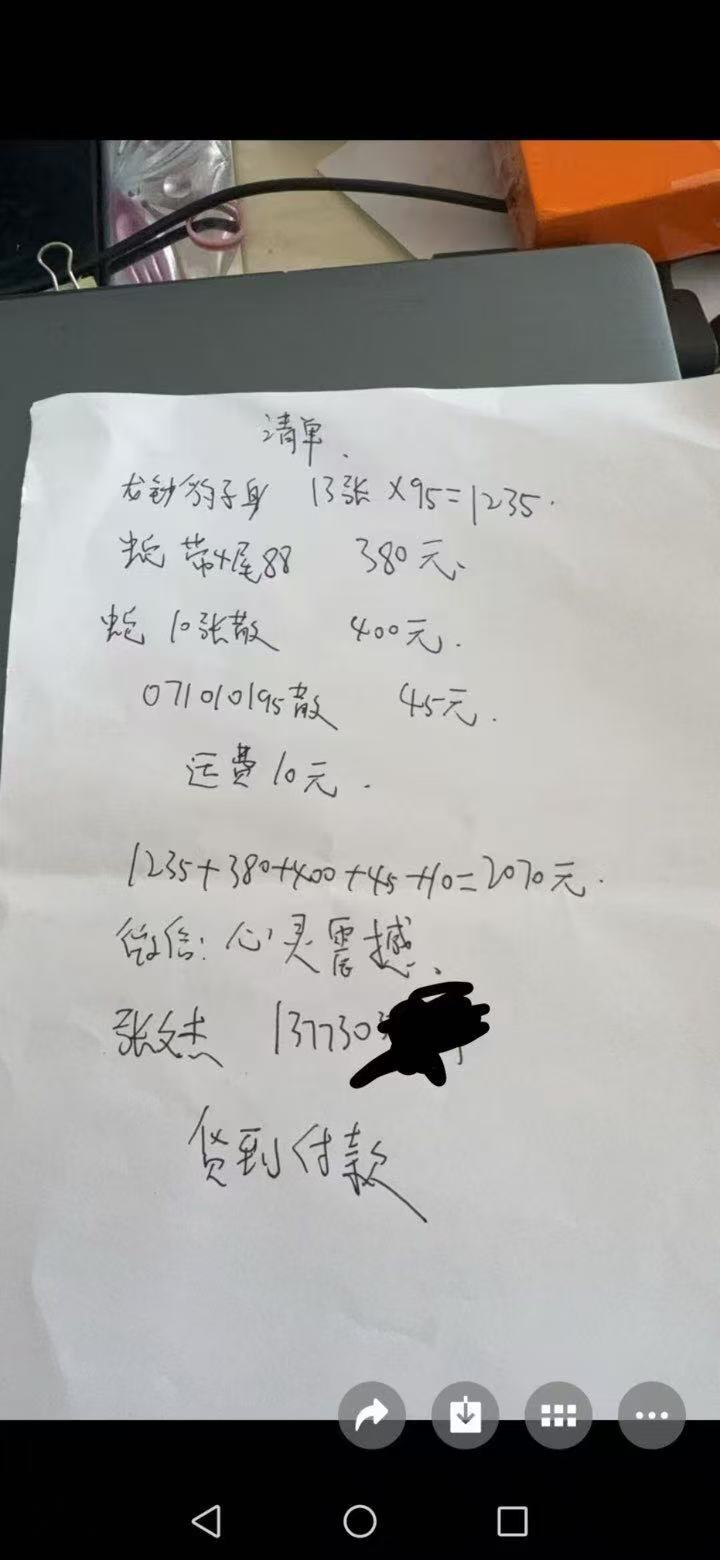 清单.
龙钞豹子号 13张×95=1235.
蛇 带4尾88 380元.
蛇 10张散 400元.
071010195散 45元.
运费10元.
1235+380+400+45+10=2070元.
微信:心灵震撼.
张文杰 137730
货到付款